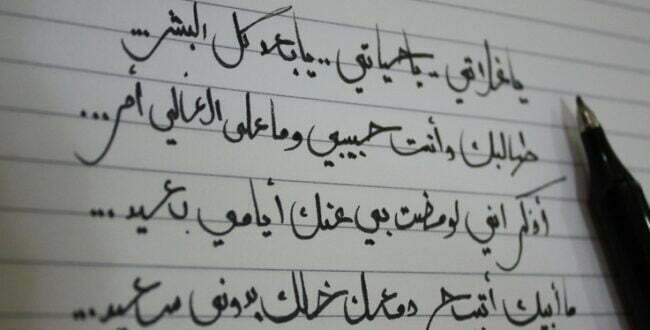 ياغلاتي .. ياحياتي .. يابعد كل البشر ...
طالبك وأنت حبيبي وما على الغالي أمر ...
أذكر اني لو مضت بي عنك أيامي بعيد ...
ما أبيك أتيح دمعك خلك بدوني سعيد ...